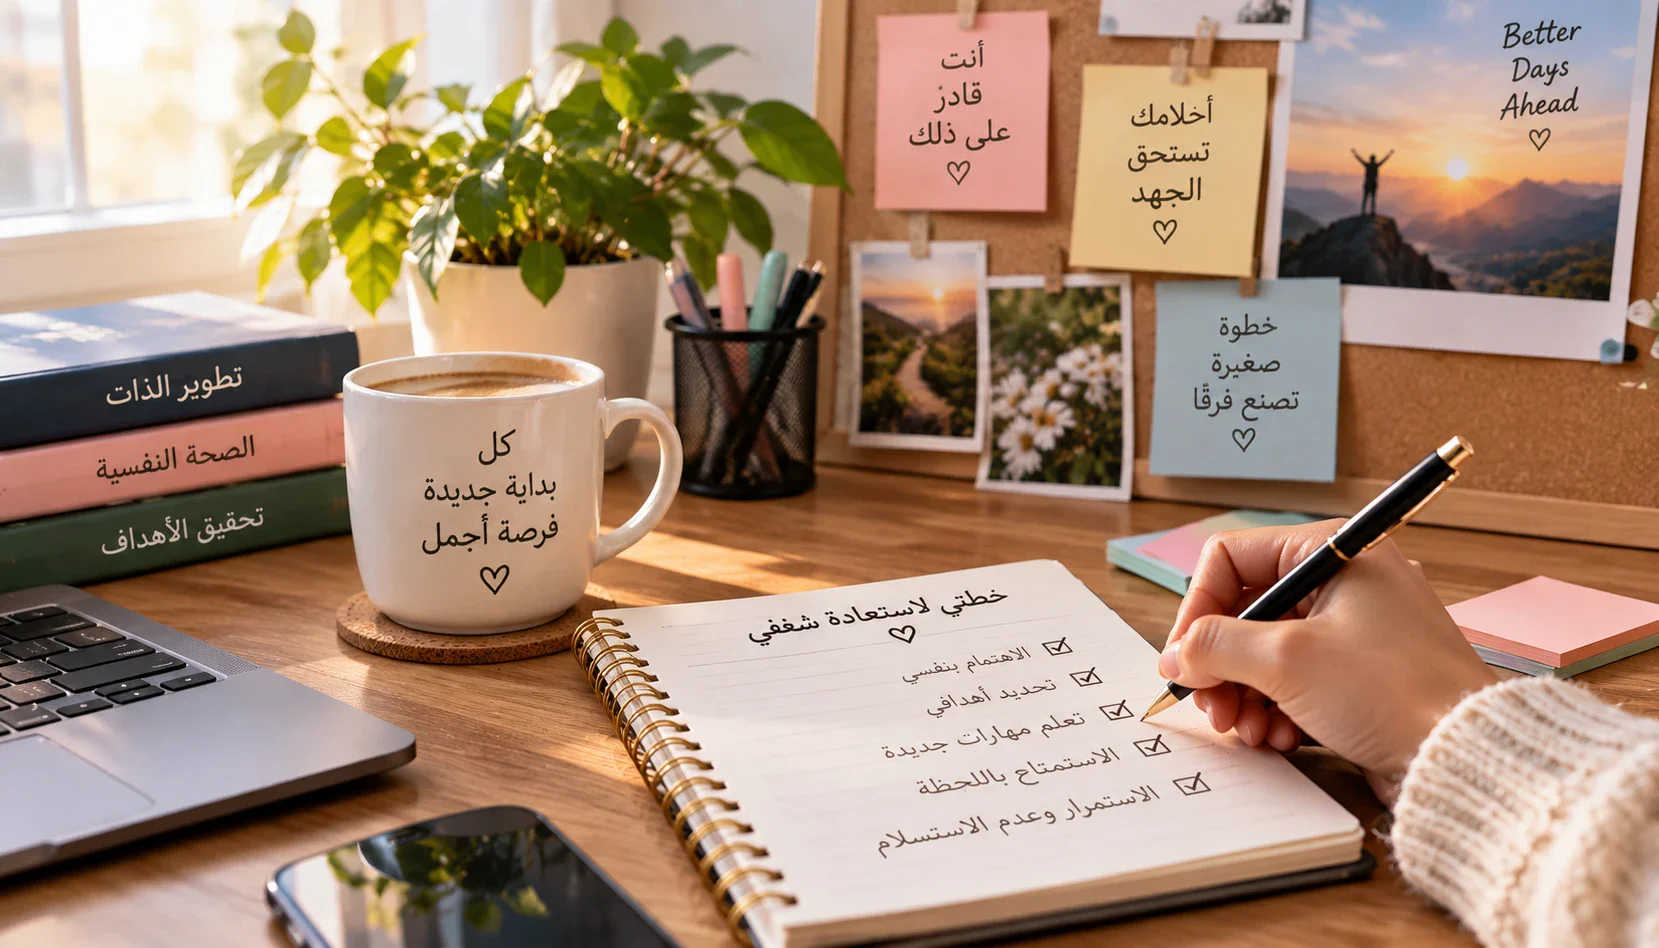 أنت
قادر
على ذلك
أحلامك
تستحق
الجهد
Better
Days
Ahead
خطوة
صغيرة
تصنع فرقًا
تطوير الذات
الصحة النفسية
تحقيق الأهداف
كل
بداية جديدة
فرصة أجمل
خطتي لاستعادة شغفي
الاهتمام بنفسي
تحديد أهدافي
تعلم مهارات جديدة
الاستمتاع باللحظة
الاستمرار وعدم الاستسلام